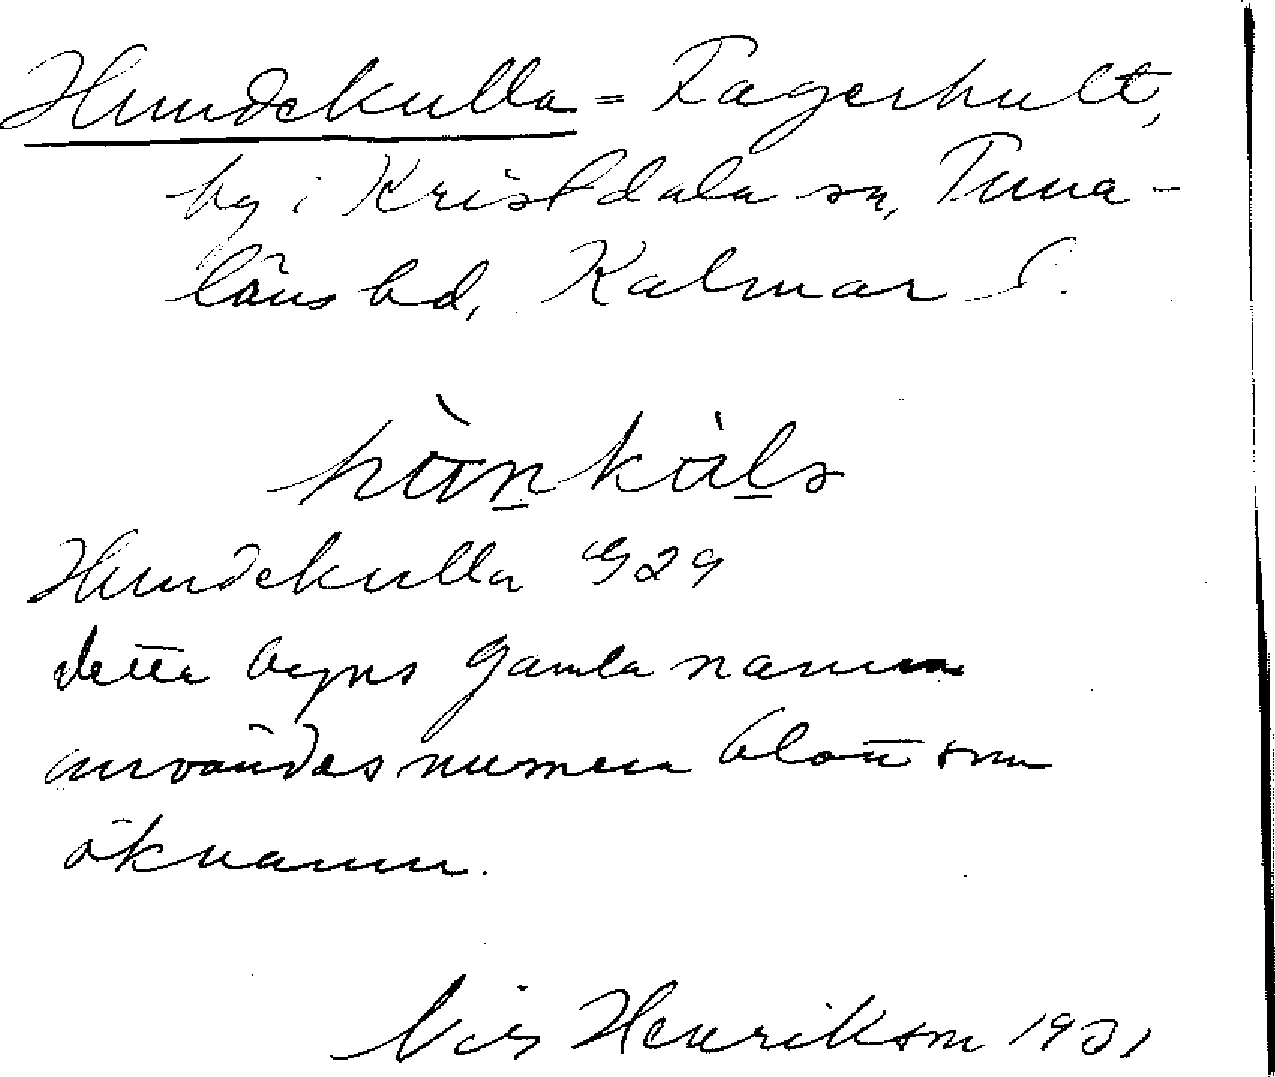 Hundekulla = Fagerhult,
by i Kristdala sn, Tuna-
läns hd, Kalmar l.
Hundekulla G29
Detta byns gamla namn
användes numera blott som
öknamn.
Henrikson 1931